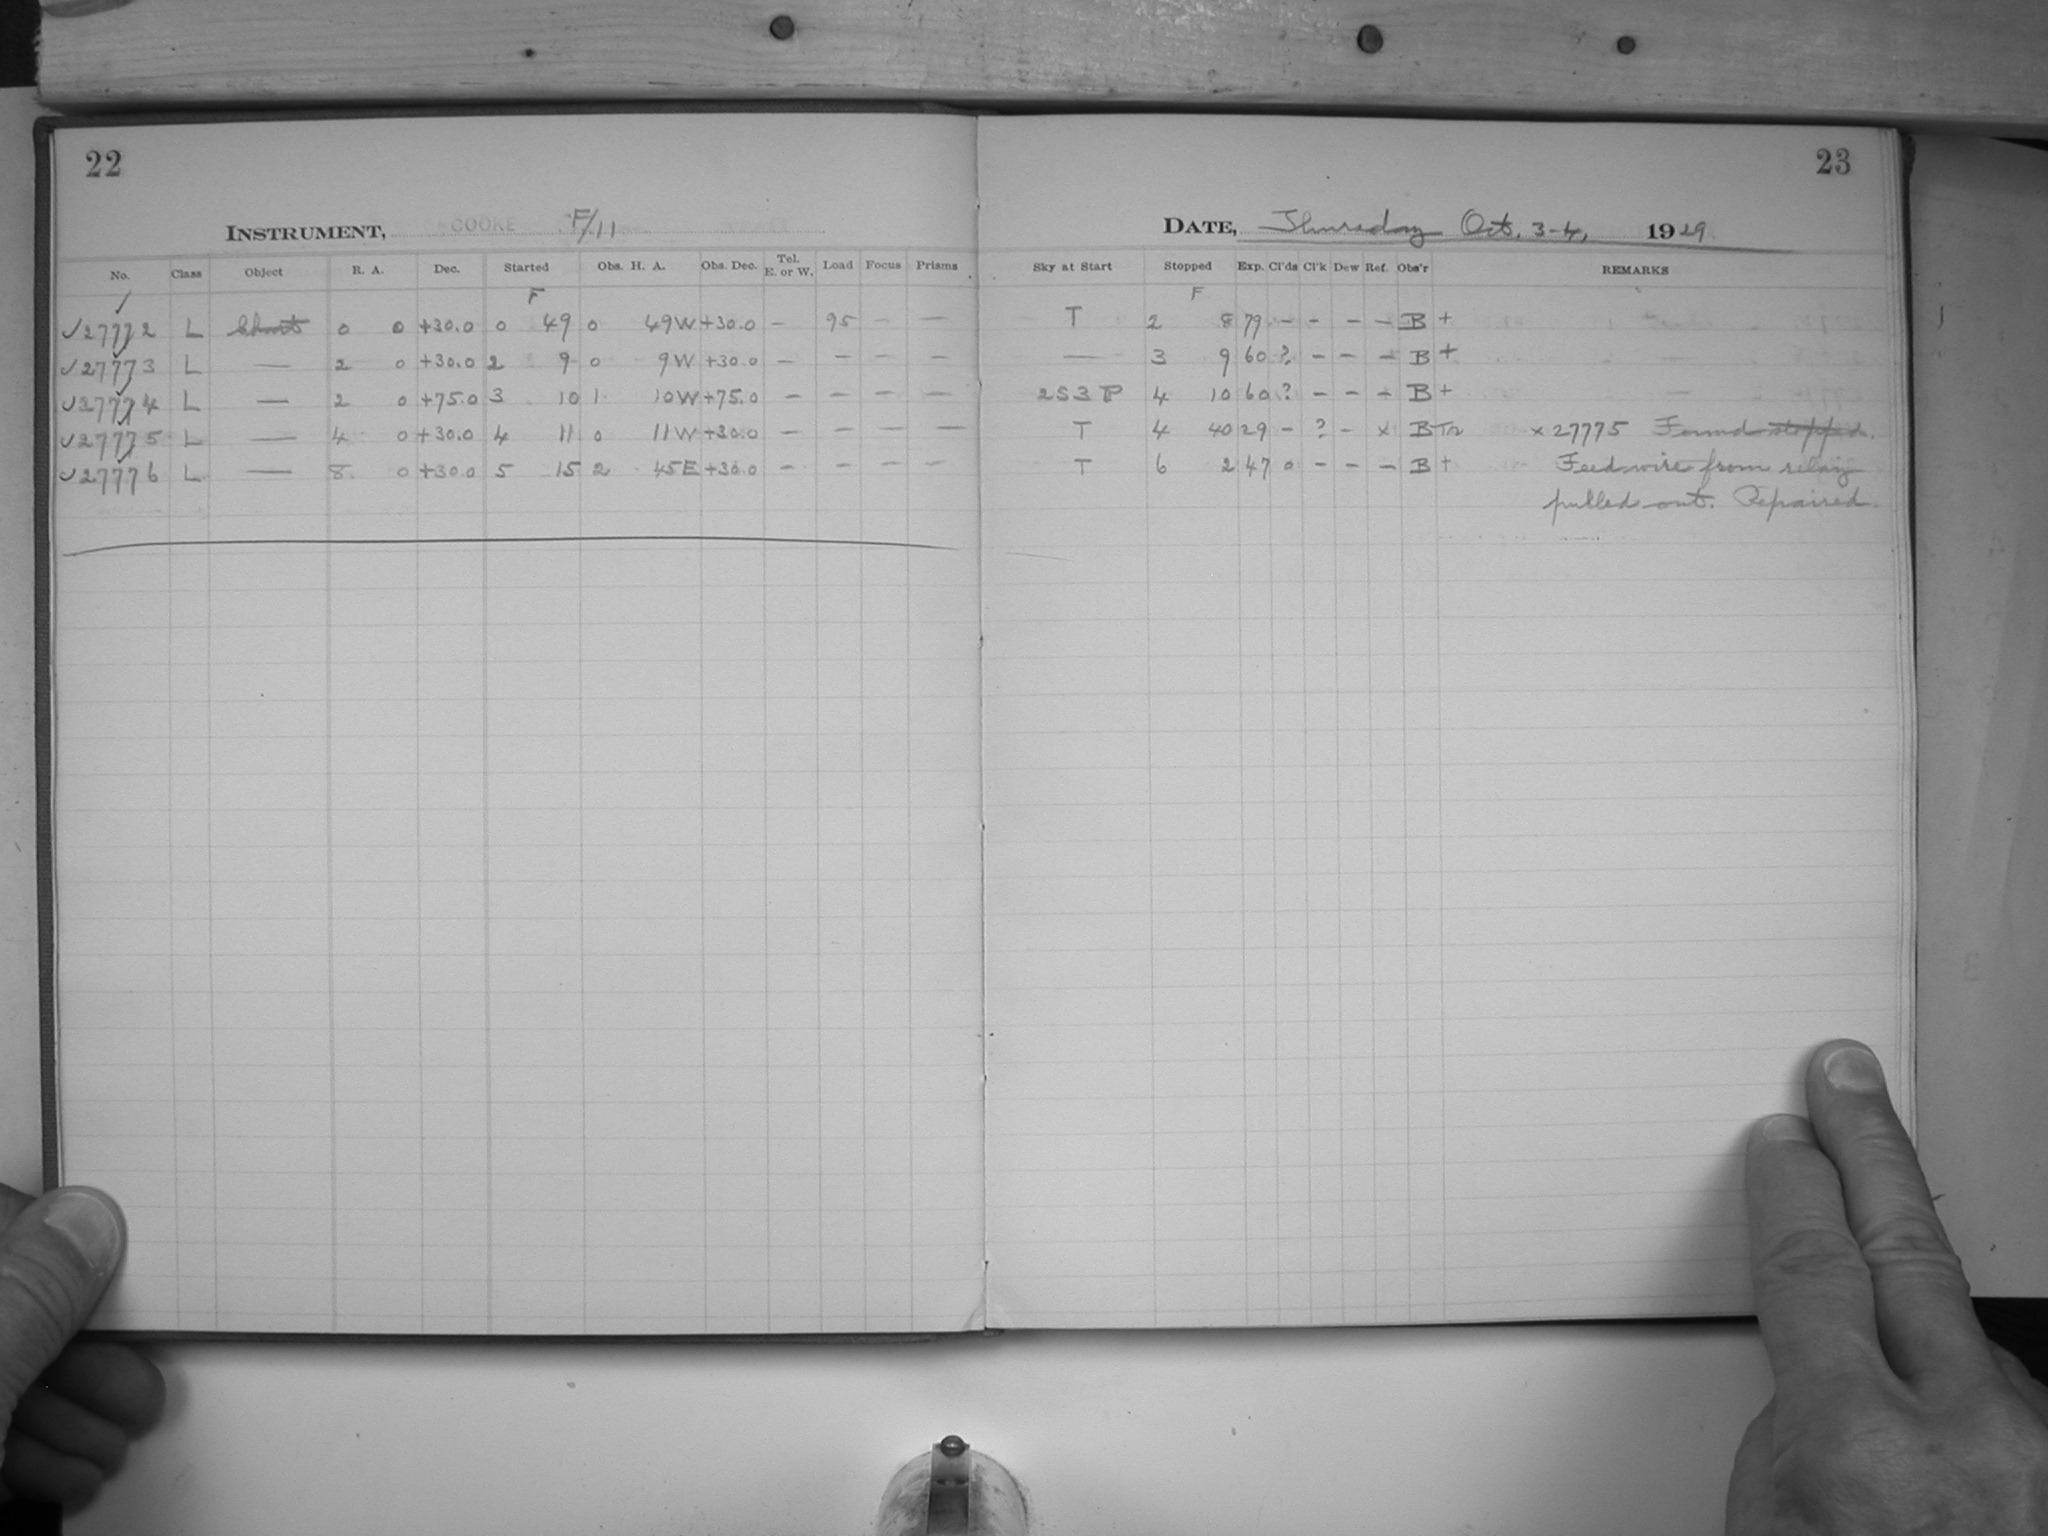 22
INSTRUMENT, COOKE F/11
No. Class Object R. A. Dec. Started Obs. H. A. Obs. Dec. Tel. E. or W. Load Focus Prisms
F
✓27772 L 0 0 +30.0 0 49 0 49W +30.0 – 95 – –
✓27773 L — 2 0 +30.0 2 9 0 9W +30.0 – – – –
✓27774 L — 2 0 +75.0 3 10 1 10W +75.0 – – – –
✓27775 L — 4 0 +30.0 4 11 0 11W +30.0 – – – –
✓27776 L — 8 0 +30.0 5 15 2 45E +30.0 – – – –
23
DATE, Thursday Oct. 3-4, 1929
Sky at Start Stopped Exp. Cl'ds Cl'k Dew Ref. Obs'r REMARKS
F
T 2 8 79 – – – – B +
— 3 9 60 ? – – – B +
2S3 P 4 10 60 ? – – – B +
T 4 40 29 – ? – × B × 27775 Found stopped.
T 6 2 47 0 – – – B + Feed wire from relay
pulled out. Repaired.